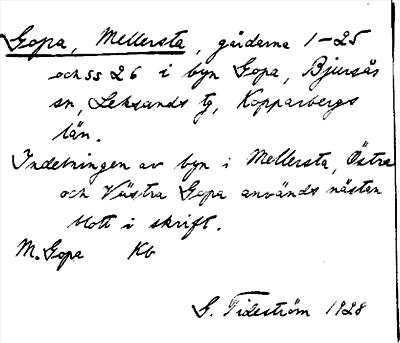 Gopa, Mellersta, gårdarna 1-25
och ss 26 i byn Gopa, Bjursås
sn, Leksands tg, Kopparbergs
län.
Indelningen av byn i Mellersta, Östra
och Västra Gopa används nästan
blott i skrift.
M. Gopa Kb
G. Tideström 1928